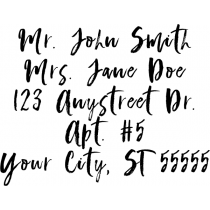 Mr. John Smith
Mrs. Jane Doe
123 Anystreet Dr.
Apt. #5
Your City, ST 55555